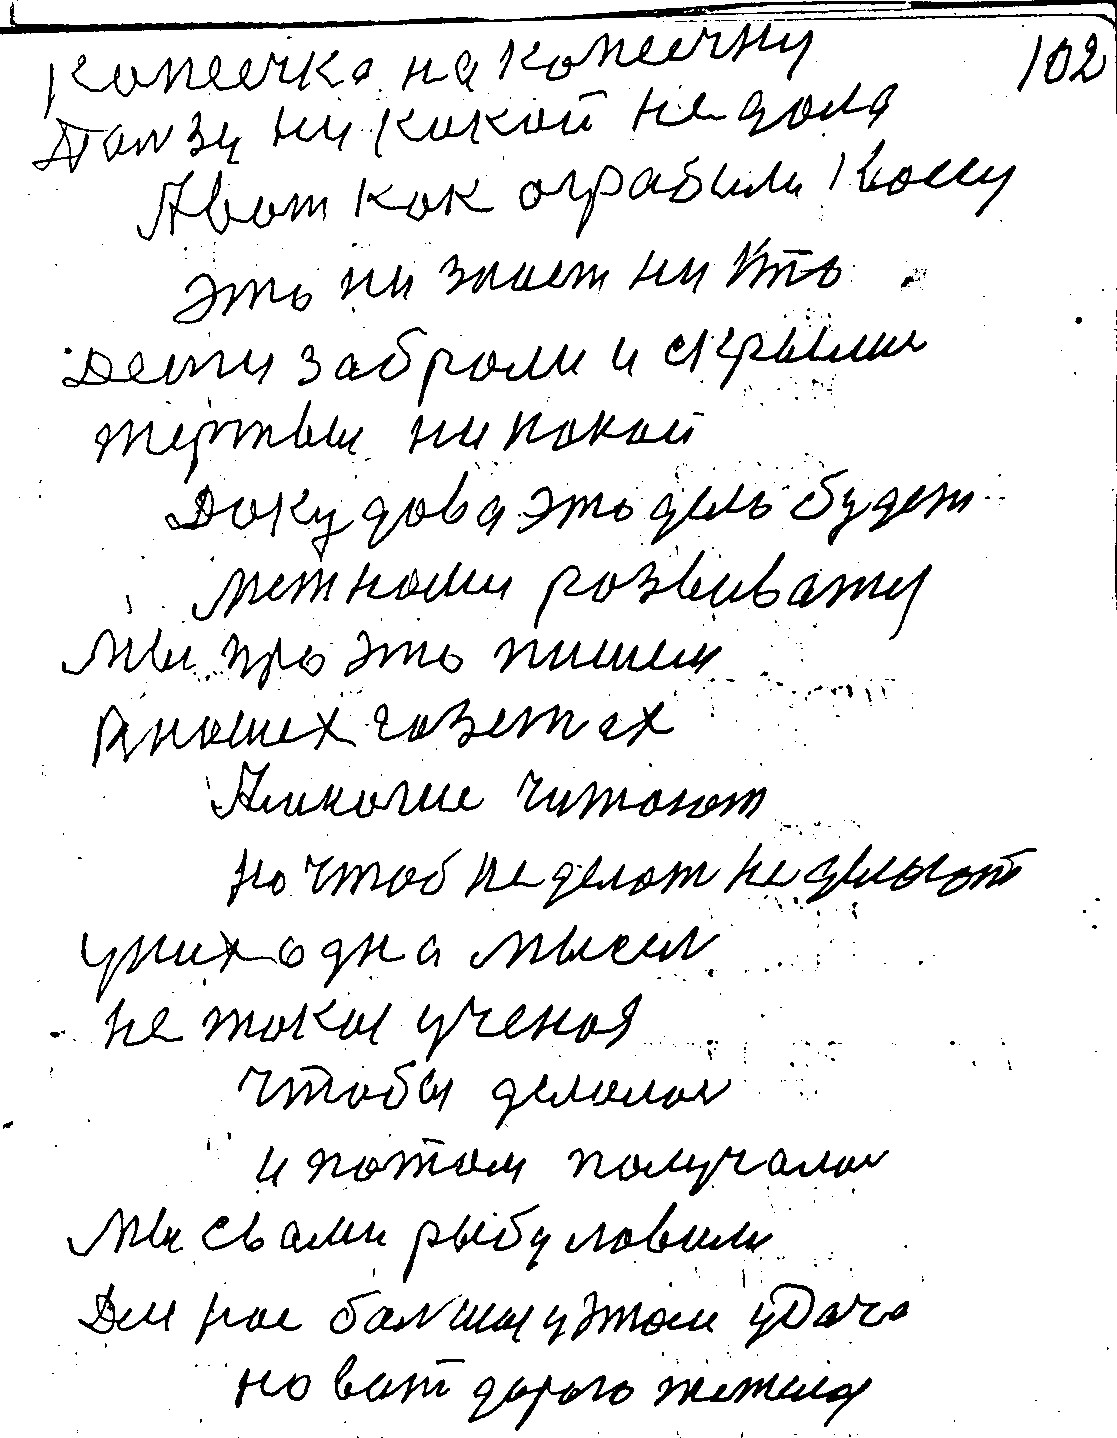 копеечка на копеечку 102
Ползу ни какой не дола
Авот как ограбили квоссу
это ни знает ни кто
Дети забрали и скрыли
жертвы ни покой
Доку дова это дело будет
меж нами розвиватц
Мы про это пишем
В наших газетах
Амногие читают
но чтоб не делат не делоют
уних одна мысел
не токая ученоя
чтобы делоли
и потом получали
Мы свами рыбу ловили
Для нас болшая у этом удача
но ват дорого